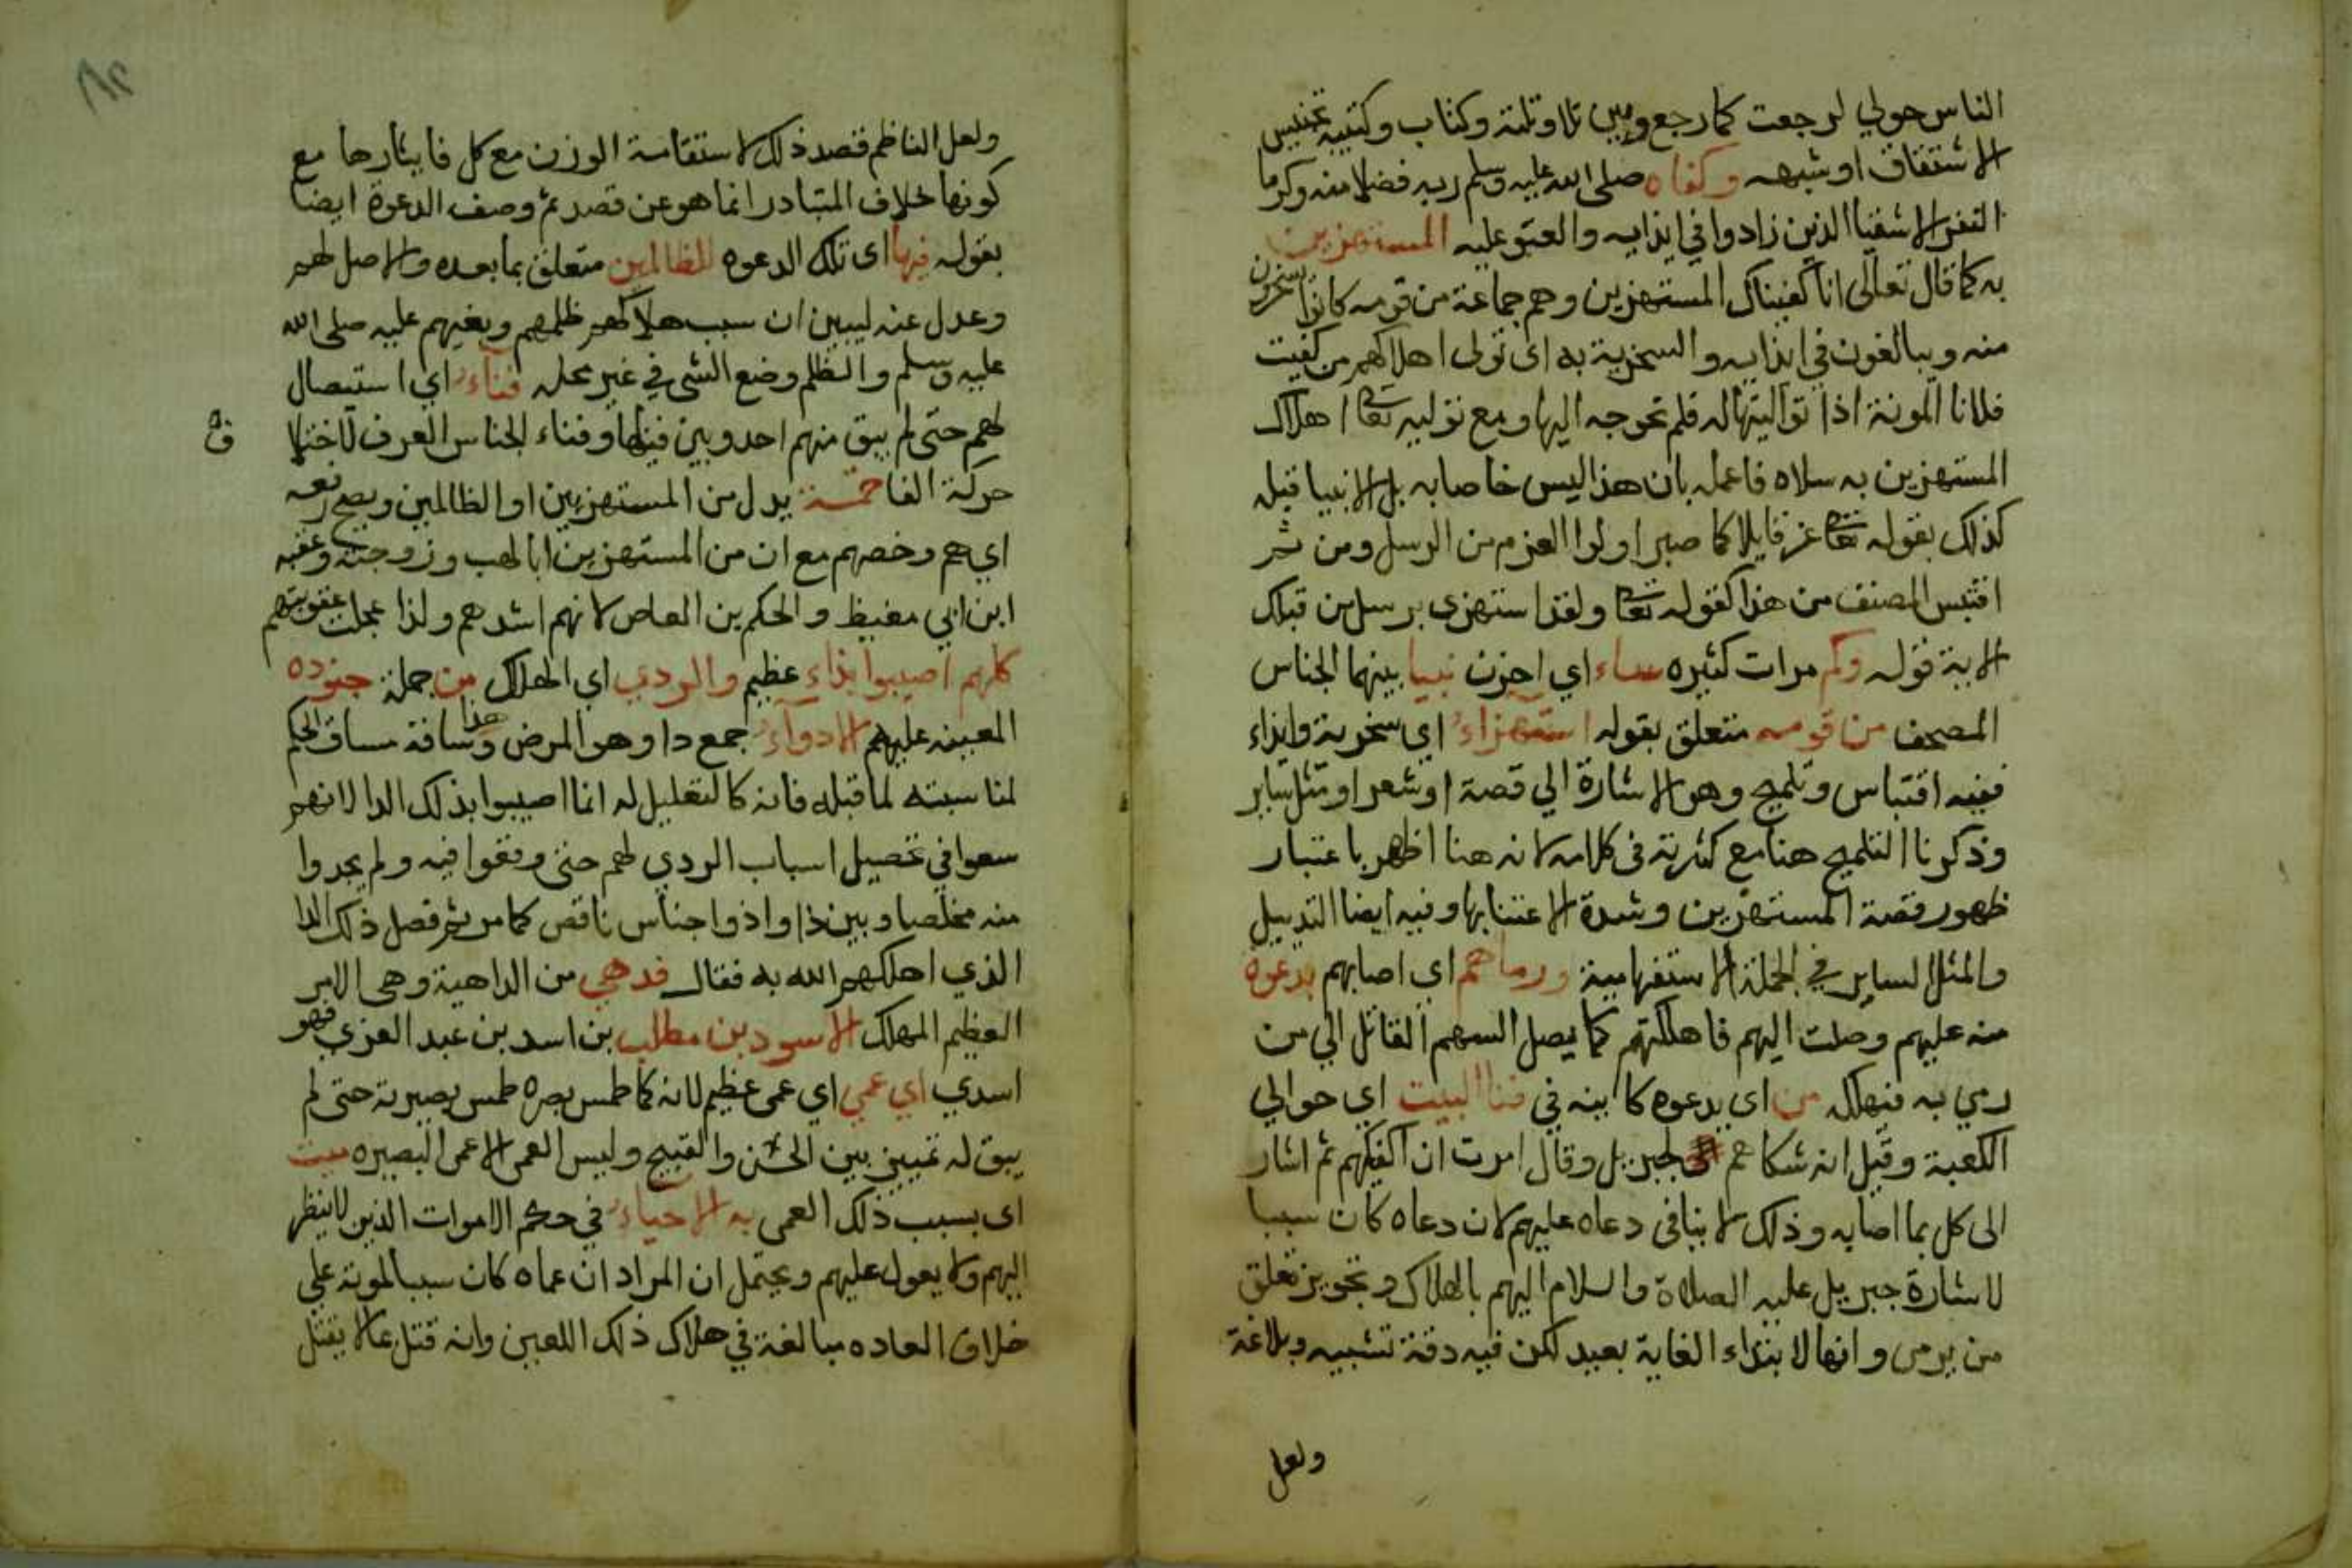 الناس حولي لرجعت كما رجع وبين تلا وتلته وكتاب وكتيبه تجنيس
الاشتقاق او شبهه وكفاه صلى الله عليه وسلم ربه فضلا منه وكرما
النفر الاشقيا الذين زادوا في ايذايه والعتو عليه المستهزين
به كما قال تعالى انا كفيناك المستهزين وهم جماعة من قومه كانوا يسخرون
منه ويبالغون في ايذايه والسخرية به اى تولى اهلاكهم من كفيت
فلانا المونة اذا توليتها له فلم تحوجه اليها ومع توليه تعا اهلاك
المستهزين به سلاه فاعمله بان هذا ليس خاصا به بل الانبيا قبله
كذلك بقوله تعا عز قايلا كما صبر اولوا العزم من الرسل ومن ثم
اقتبس المصنف من هذا كقوله تعا ولقد استهزى برسل من قبلك
الاية قوله وكم مرات كثيره ساء اي احزن نبيا بينهما الجناس
المصحف من قومه متعلق بقوله استهزاء اي سخرية وايذاء
ففيه اقتباس وتلميح وهو الاشارة الي قصة او شعر او مثل ساير
وذكرنا التلميح هنا مع كثرته فى كلامه لانه هنا اظهر باعتبار
ظهور قصة المستهزين وشدة الاعتنا بها وفيه ايضا التذييل
والمثل الساير في الجملة الاستفهامية ورماهم اى اصابهم بدعوة
منه عليهم وصلت اليهم فاهلكتهم كما يصل السهم القاتل الي من
رمي به فيهلكه من اى بدعوه كاينه في فنا البيت اي حوالي
الكعبة وقيل انه شكاهم لجبريل وقال امرت ان اكفيكهم ثم اشار
الى كل بما اصابه وذلك لا ينافى دعاه عليهم لان دعاه كان سببا
لاشارة جبريل عليه الصلاة والسلام اليهم بالهلاك وتجويز تعلق
من برمى وانها لابتداء الغاية بعيد لكن فيه دقة تشبيه وبلاغة
ولعل
ولعل الناظم قصد ذلك لاستقامة الوزن مع كل فايثارها مع
كونها خلاف المتبادر انما هو عن قصد ثم وصف الدعوة ايضا
بقوله فيها اى تلك الدعوه للظالمين متعلق بما بعده والاصل لهم
وعدل عنه ليبين ان سبب هلاكهم ظلمهم وبغيهم عليه صلى الله
عليه وسلم والظلم وضع الشى في غير محله فناء اي استيصال
لهم حتى لم يبق منهم احد وبين فنا وفناء الجناس العرف لاختلا
ف
حركة الفا خمسة بدل من المستهزيين او الظالمين ويصح رفعه
اي هم وخصهم مع ان من المستهزين ابا لهب وزوجته وعقبه
ابن ابي مغيظ والحكم بن العاص لانهم اشدهم ولذا عجلت عقوبتهم
كلهم اصيبوا بداء عظيم والردي اي الهلاك من جملة جنوده
المعينه عليهم الادواء جمع دا وهو المرض وساقه هذا مساق الحكم
لمناسبته لما قبله فانه كالتعليل له انما اصيبوا بذلك الدا لانهم
سعوا في تحصيل اسباب الردي لهم حتى وقعوا فيه ولم يجدوا
منه مخلصا وبين دا وادوا جناس ناقص كما مر ثم فصل ذلك الدا
الذي اهلكهم الله به فقال فدهي من الداهية وهى الامر
العظيم المهلك الاسود بن مطلب بن اسد بن عبد العزي فهو
اسدي اي عمي اي عمى عظيم لانه كما طمس بصره طمس بصيرته حتى لم
يبق له تمييز بين الحسن والقبيح وليس العمى الا عمى البصيره ميت
اى بسبب ذلك العمى به الاحياء في حكم الاموات الذين لا ينظر
اليهم ولا يعول عليهم ويحتمل ان المراد ان عماه كان سببا لموته على
خلاف العاده مبالغة في هلاك ذلك اللعين وانه قتل بما لا يقتل